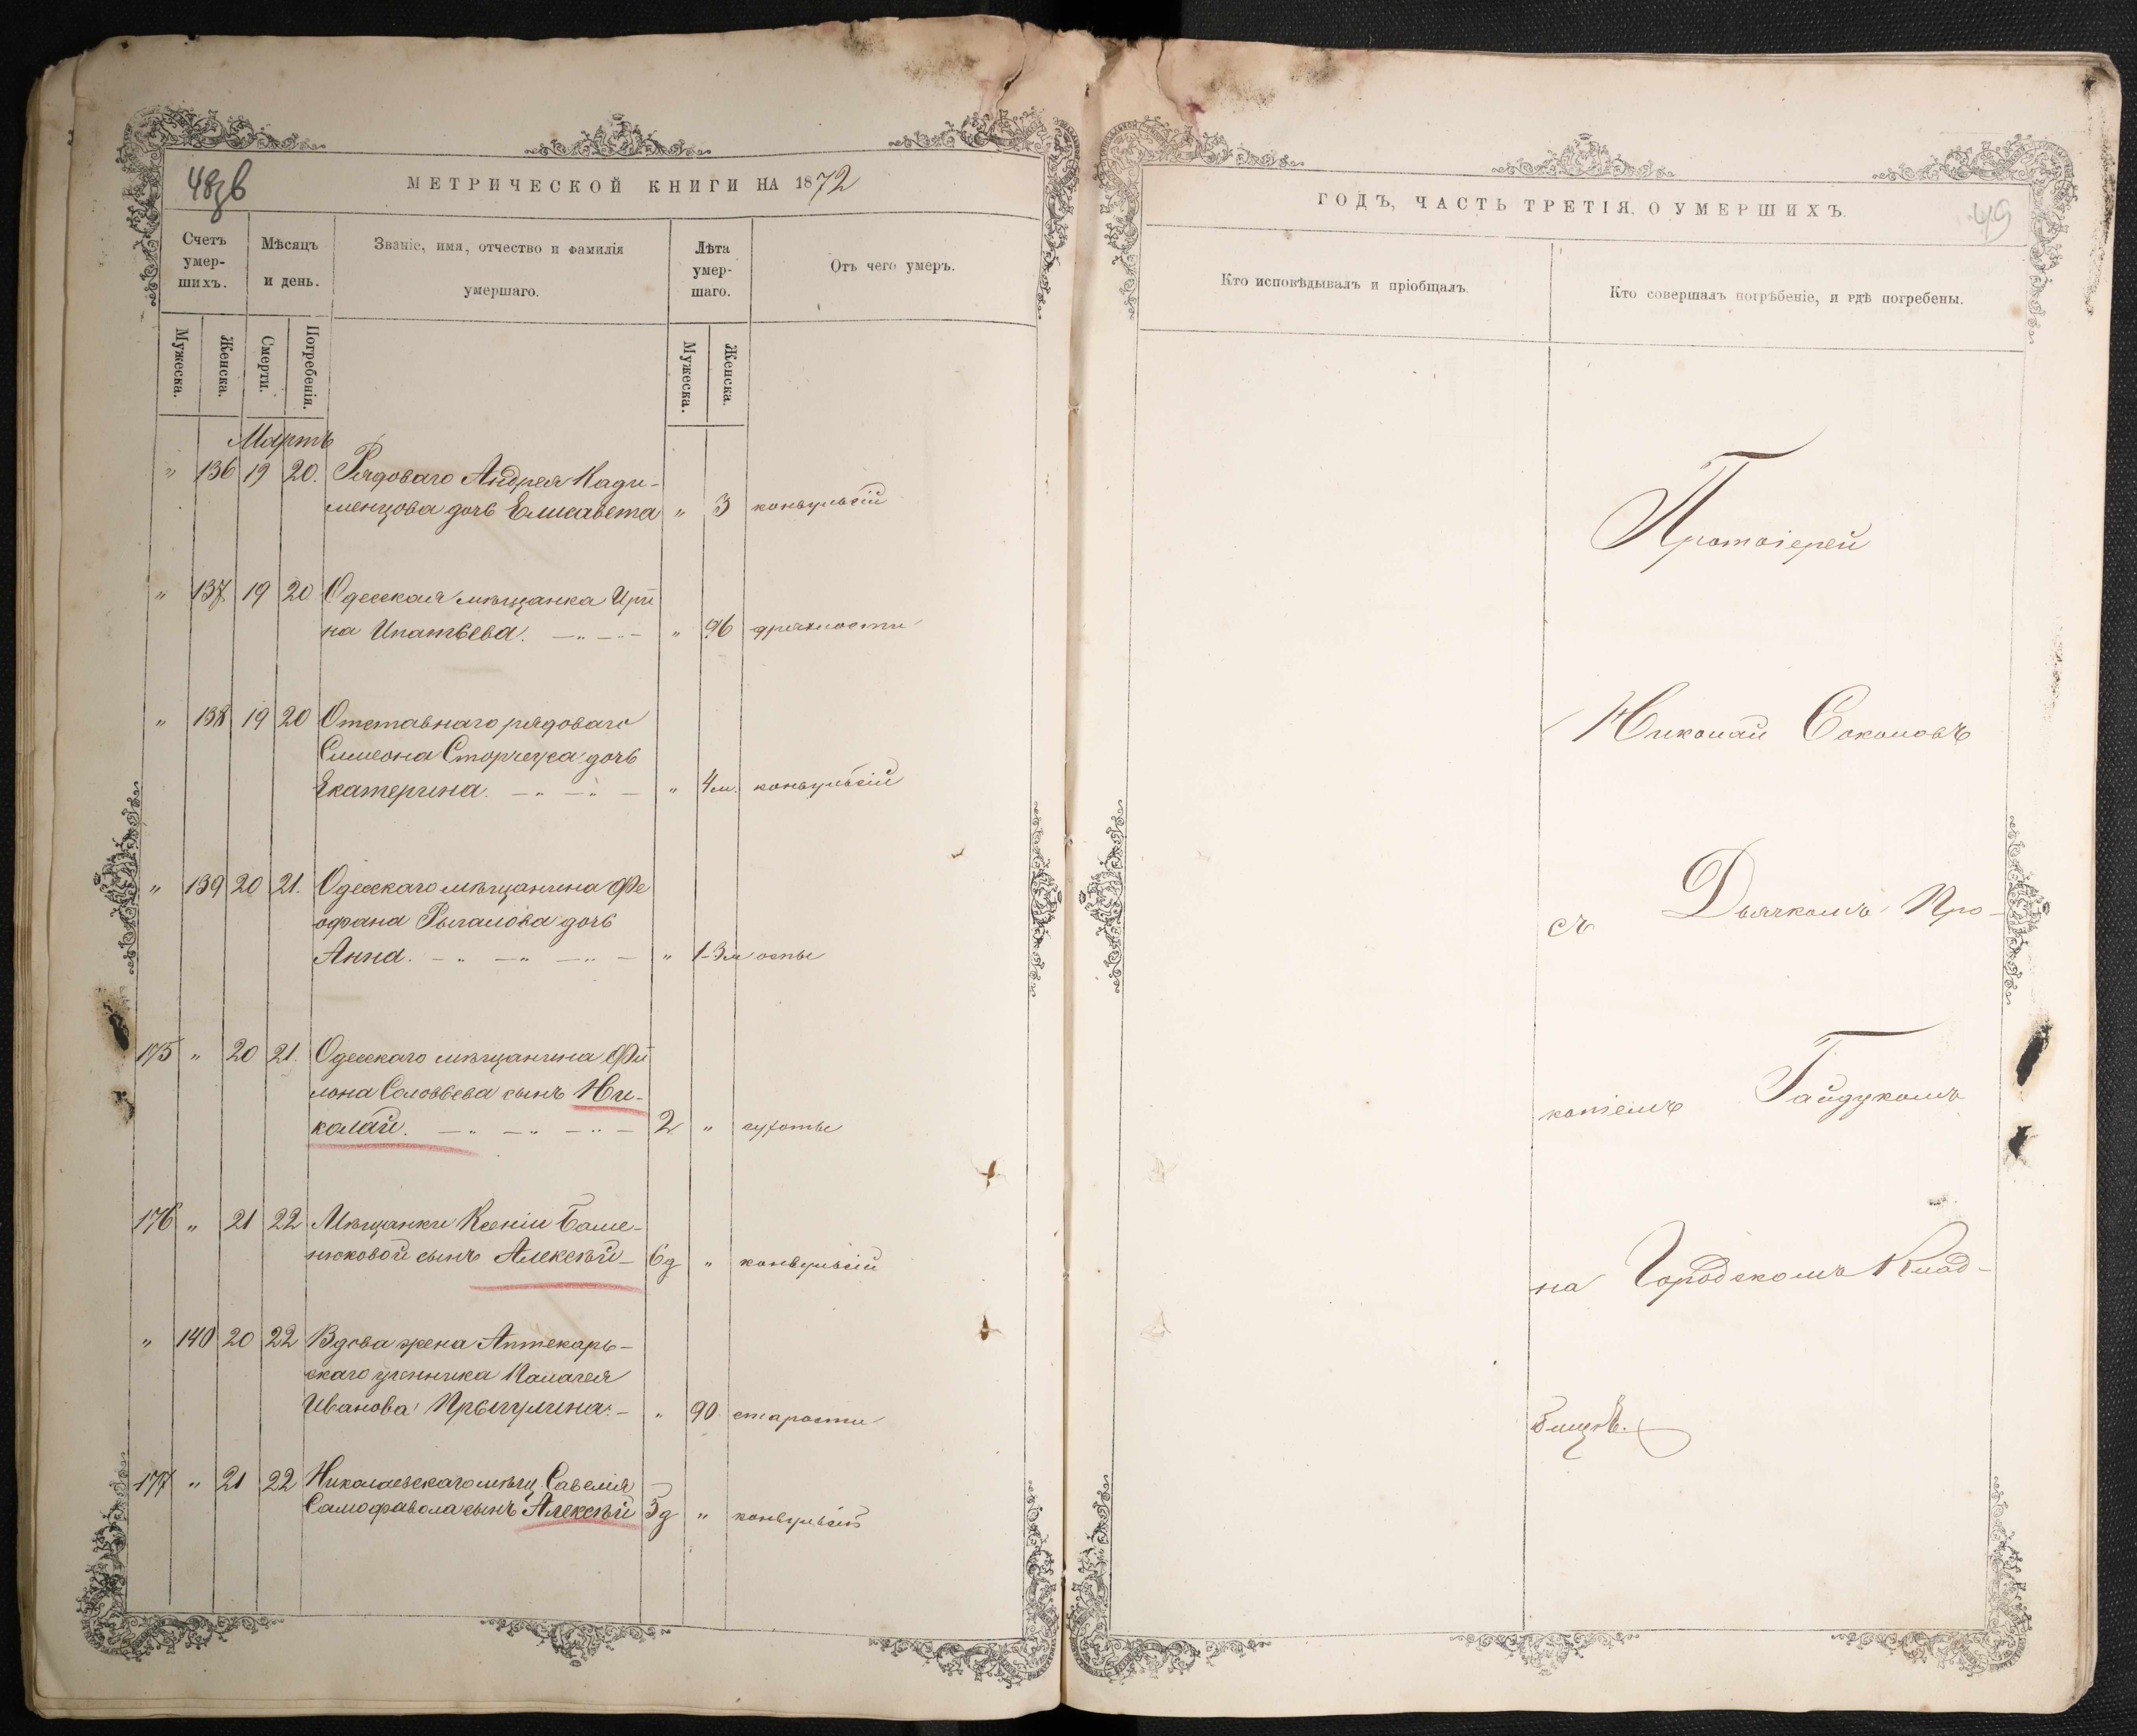 48зв
МЕТРИЧЕСКОЙ КНИГИ НА 1872
Счетъ умер-шихъ.
Мѣсяцъ и день.
Званіе, имя, отчество и фамилія умершаго.
Лѣта умер-шаго.
Отъ чего умеръ.
Мужеска.
Женска.
Смерти.
Погребенія.
Мужеска.
Женска.
Мартъ
" 136 19 20. Рядоваго Андрея Кади-
менцова дочь Елисавета " 3 конвульсій
" 137 19 20 Одесская мѣщанка Ири
на Ипатьева. " 96 дряхлости
" 138 19 20 Отставнаго рядоваго
Симеона Сторчеуса дочь
Екатерина. " 4 м. конвульсій
" 139 20 21. Одесскаго мѣщанина Фе
офана Рыгалова дочь
Анна. " 1-3м оспы
175 " 20 21. Одесскаго мѣщанина Фи
лона Соловьева сынъ Ни-
колай. 2 " сухоты
176 " 21 22 Мѣщанки Ксеніи Баше-
нюковой сынъ Алексѣй 6д " конвульсій
" 140 20 22 Вдова жена Аптекарь-
скаго ученика Палагея
Иванова Прыгулина. " 90 старости
177 " 21 22 Николаевскаго мѣщ. Савелія
Самофавола сынъ Алексѣй 5д " конвульсій
ГОДЪ, ЧАСТЬ ТРЕТІЯ, О УМЕРШИХЪ.
49
Кто исповѣдывалъ и пріобщалъ.
Кто совершалъ погребеніе, и гдѣ погребены.
Протоіерей
Николай Соколовъ
съ Дьячкомъ Про-
копіемъ Гайдукомъ
на Городскомъ Клад-
бищѣ.